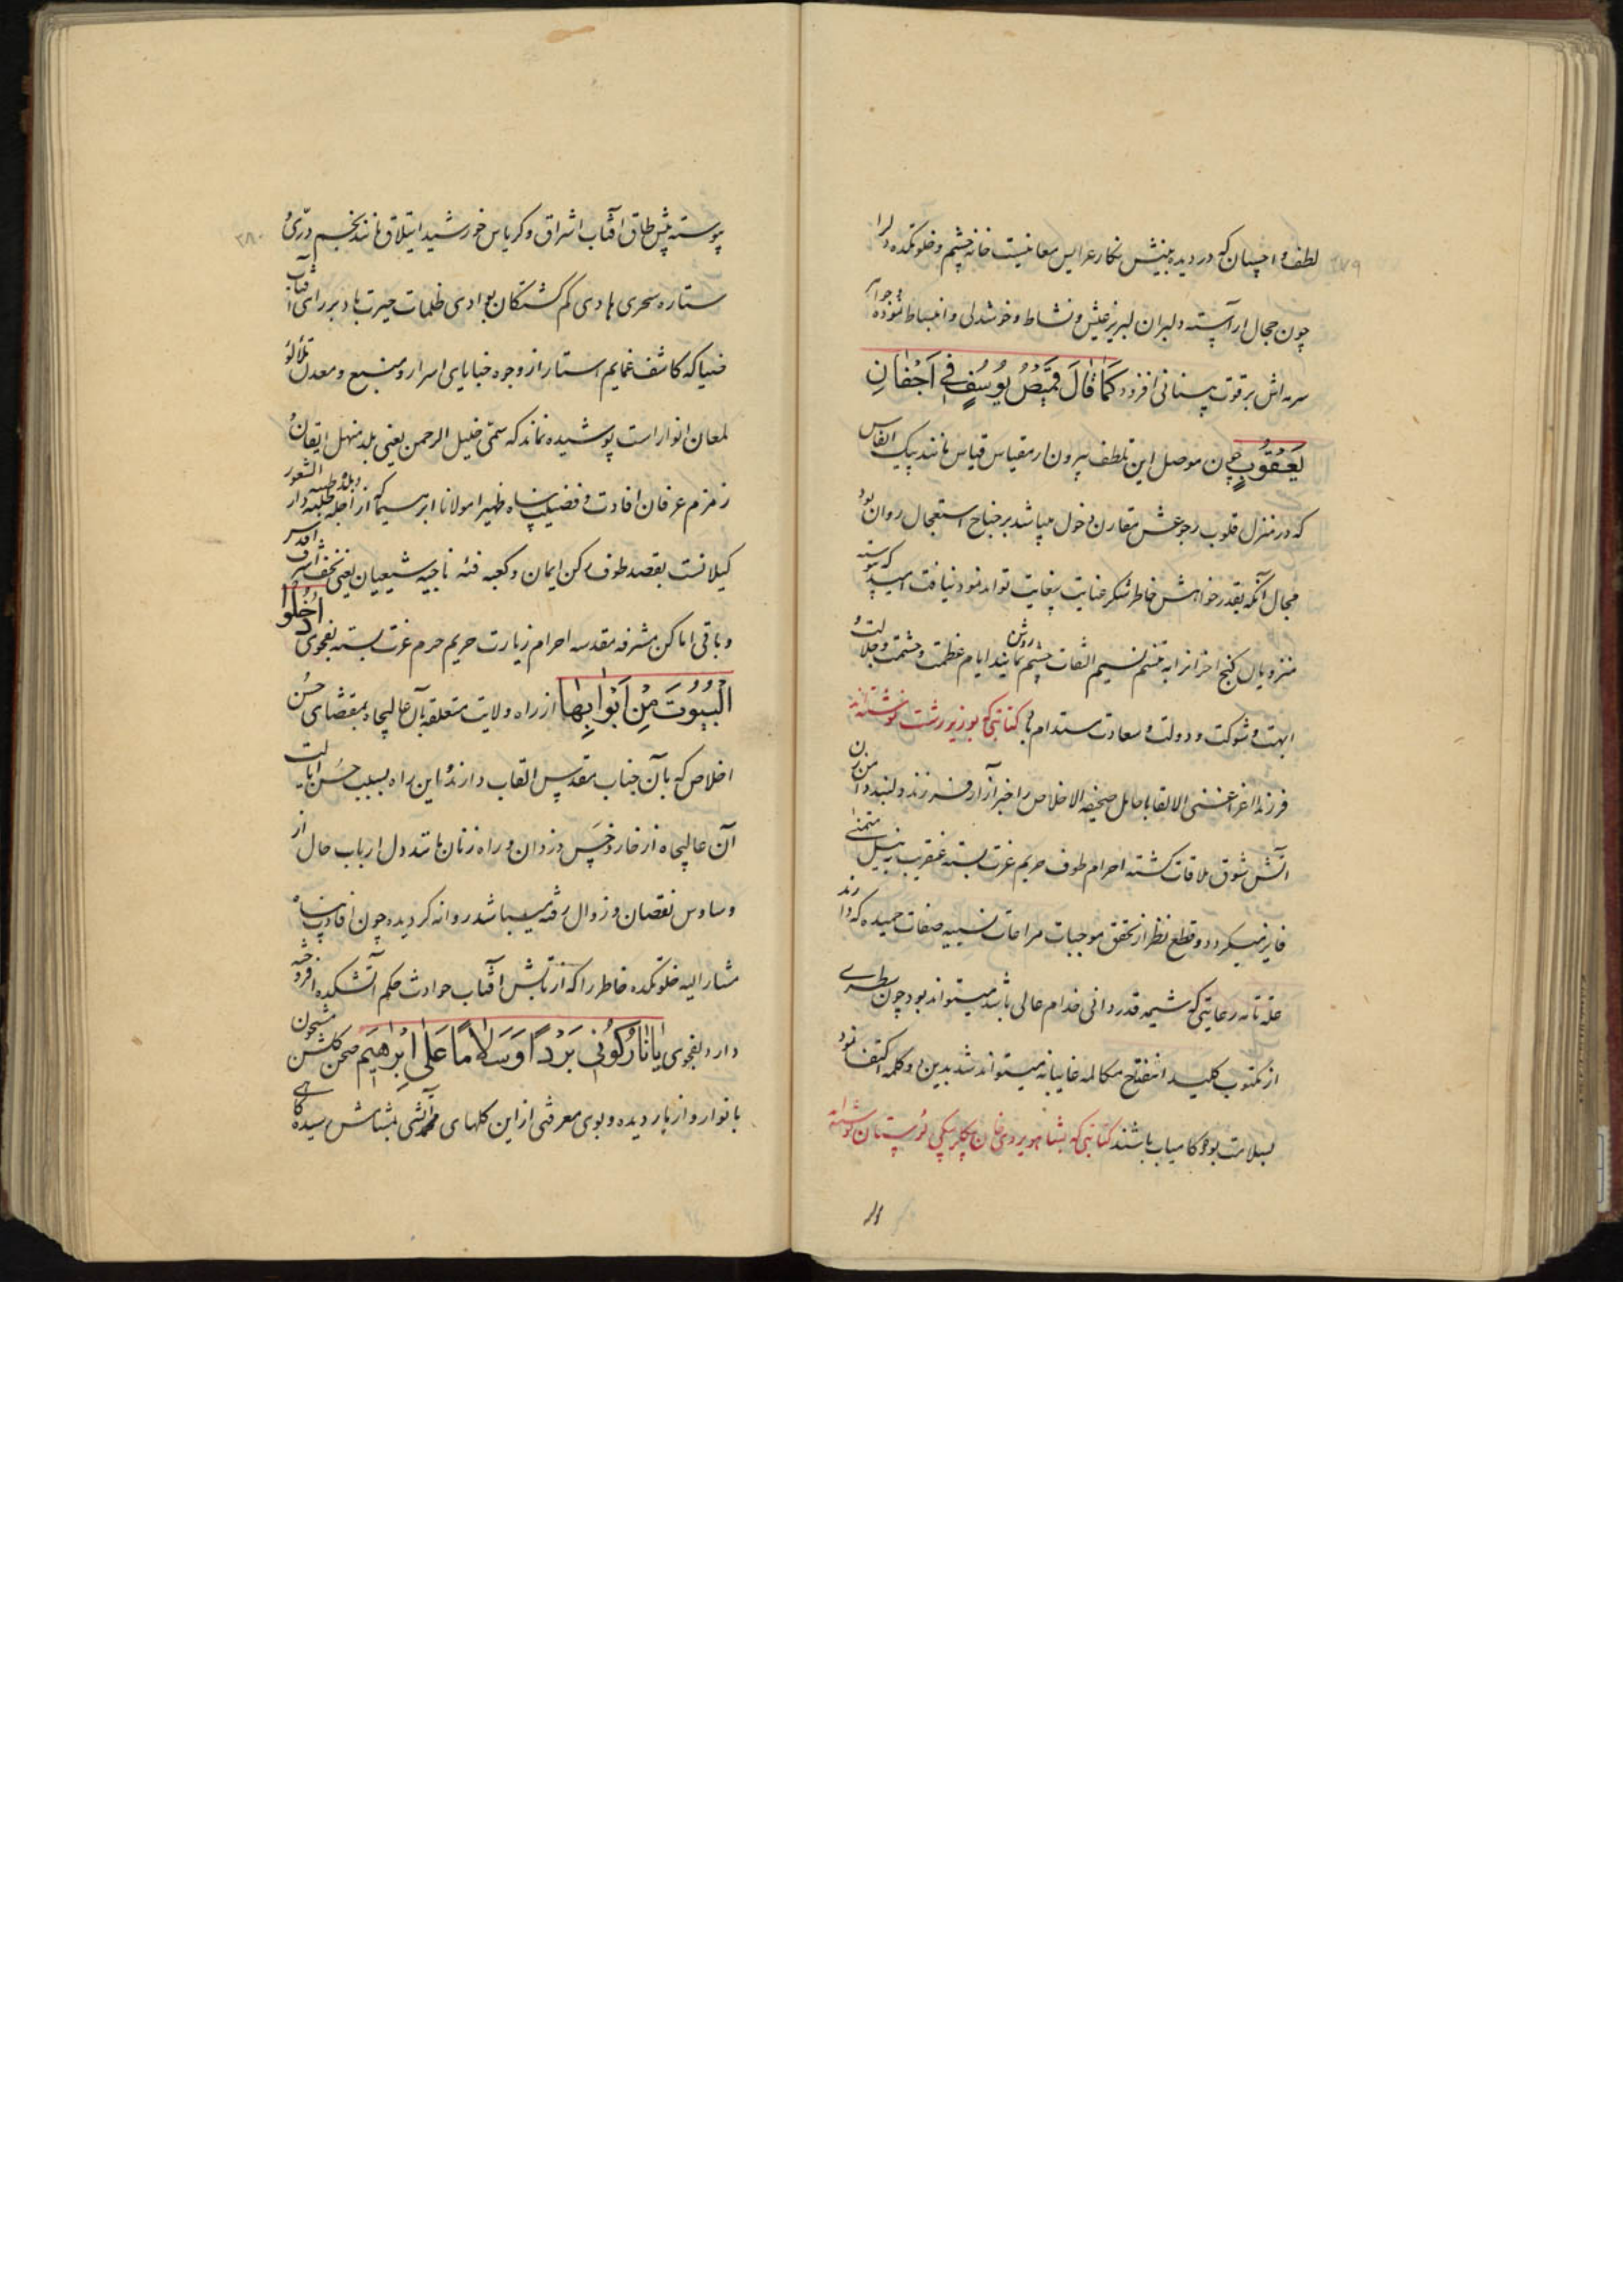 ۲۷۹
لطف و احسان که در دیده بینش نگار عرایس معانیست خانه چشم و خلوتکده دلرا
چون حجال آراسته دلبران لبریز عیش و نشاط و خوشدلی و انبساط نموده و جواهر
سرمه‌اش بر قوت بینائی افزود کَمٰا قٰالَ قَمیصُ یُوسُفٍ فی اَجْفٰانِ
یَعْقُوبٍ چون موصل این تلطف بیرون از مقیاس قیاس مانند پیک انفاس
که در منزل قلوب رجوعش مقارن دخول میباشد بر جناح استعجال روان بود
مجال آنکه بقدر خواهش خاطر شکر عنایت بیغایت تواند نمود نیافت امید که پیوسته
منزویان کنج احتراز را به تنسم نسیم التفات چشم روشن نمایند ایام عظمت و حشمت و جلالت و
ابهت و شوکت و دولت و سعادت مستدام باد کتابتی که بوزیر رشت نوشته‌اند
فرزندا اعز اغنی الالقابا حامل صحیفه الاخلاص را خبر آزار فرزند دلبند دامن زن
آتش شوق ملاقات گشته احرام طوف حریم عزت بسته عنقریب به نیل متمنی
فایز میگردد و قطع نظر از تحقق موجبات مراعات نسبیه صفات حمیده که دارند
علة تامه رعایتی که شیمه قدردانی خدام عالی باشد میتواند بود چون سطری
از مکتوب کلید انفتاح مکالمه غایبانه میتواند شد بدین دو کلمه اکتفا نمود
بسلامت بوده کامیاب باشند کتابتی که بشاهویردی خان بیگلربیگی لرستان نوشته‌اند
۲۸۰
پیوسته پیش طاق آفتاب اشراق و کریاس خورشید ایتلاق مانند نجم درّی و
ستاره سحری هادی گم گشتگان بوادی ظلمات حیرت باد بر رای آفتاب
ضیا که کاشف غمایم استار از وجوه خبایای اسرار و منبع و معدن تلألؤ
لمعان انوار است پوشیده نماند که سمّی خلیل الرحمن یعنی بلد منهل ایقان و
زمزم عرفان افادت و فضیلت پناه ظهیرا مولانا ابرهیما که از اجله طلبه دار
گیلانست بقصد طوف رکن ایمان و کعبه فئه ناجیه شیعیان یعنی نجف اشرف اقدس
و باقی اماکن مشرفه مقدسه احرام زیارت حریم حرم عزت بسته بفحوی اُدْخُلُوا
الْبُیُوتَ مِنْ اَبْوٰابِهٰا از راه ولایت متعلقه بآن عالیجاه بمقتضای حُسن
اخلاص که بآن جناب مقدس القاب دارند و این راه بسبب حُسن ایالت
آن عالیجاه از خار و خس دزدان و راه زنان مانند دل ارباب حال از
وساوس نقصان و زوال رفته میباشد روانه گردیده چون افادت پناه
مشارالیه خلوتکده خاطر را که از تابش آفتاب حوادث حکم آتشکده افروخته
دارد بفحوی یٰا نٰارُ کُونی بَرْداً وَ سَلاٰماً عَلیٰ اِبْرٰهیٖمَ صحن گلشن مشحون
بانوار و ازهار دیده و بوی معرفتی از این گلهای محمدی بمشامش رسیده گاهی